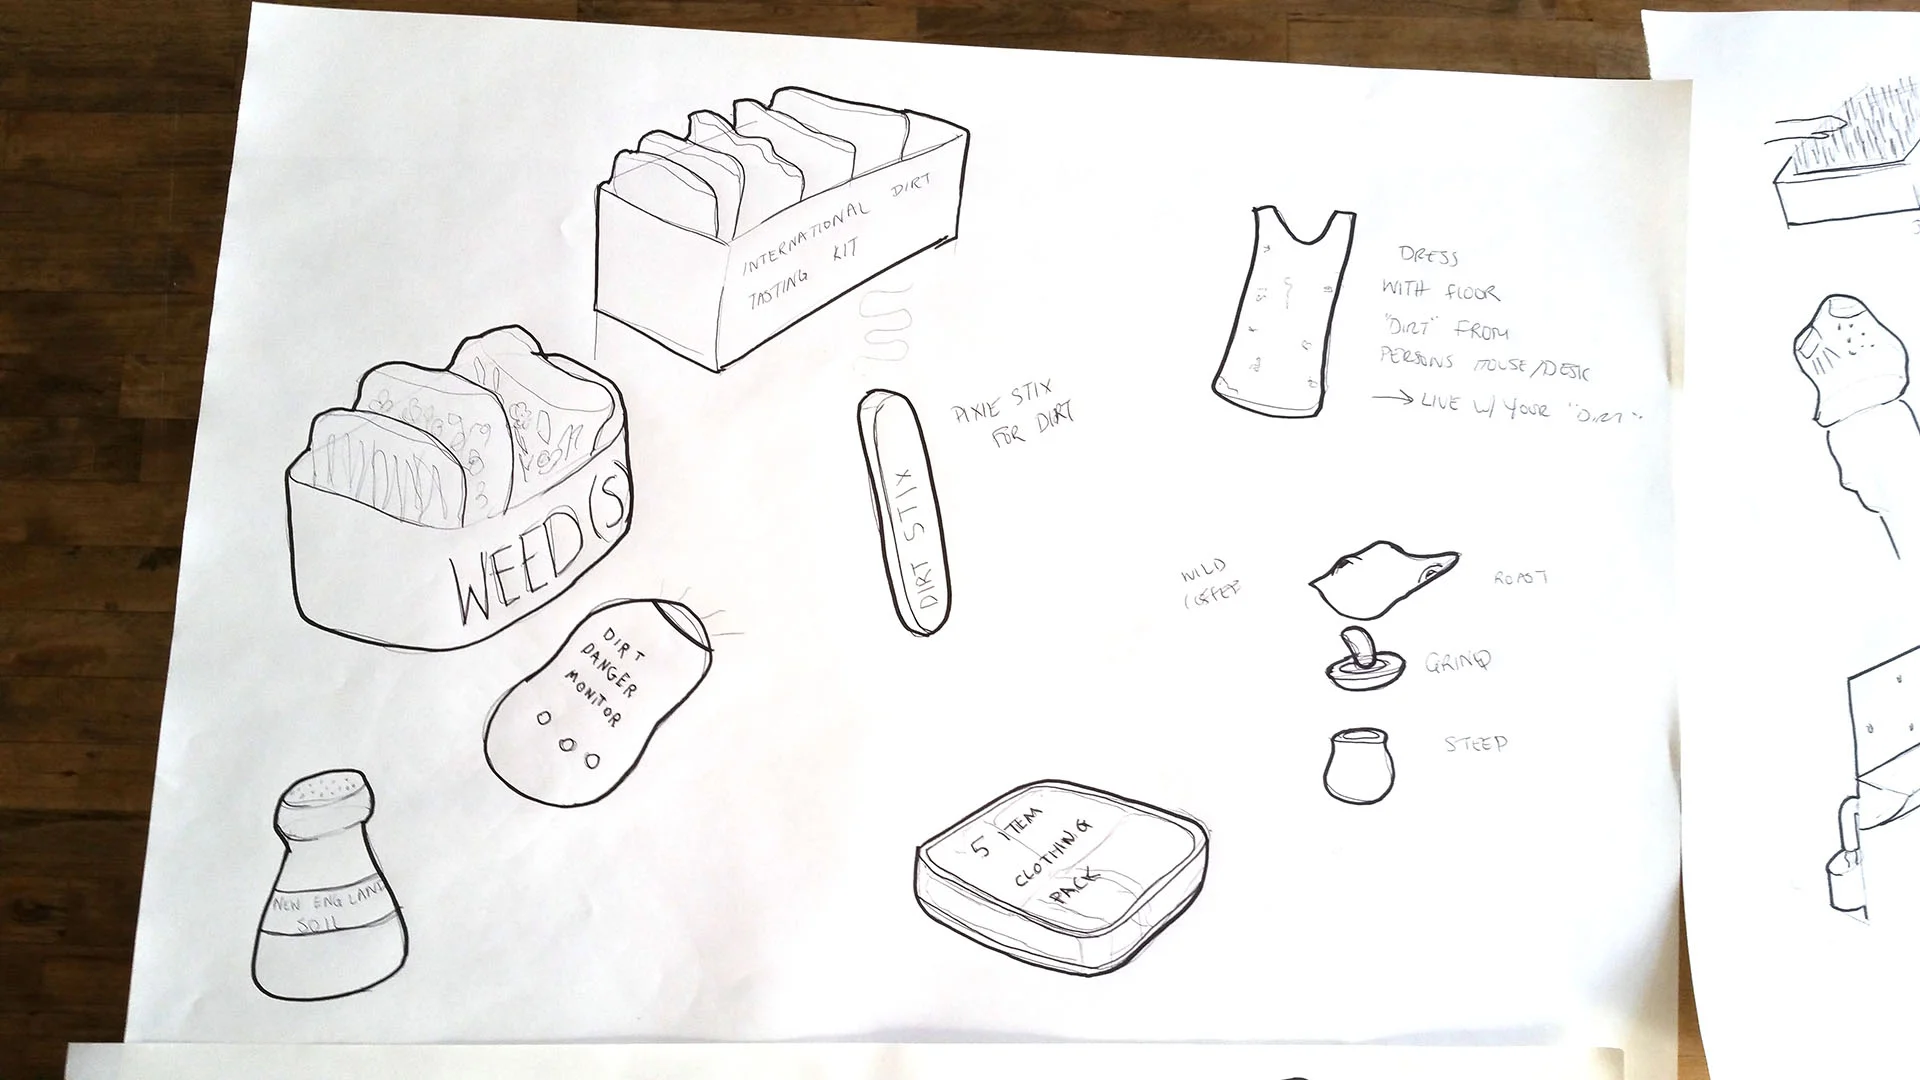 INTERNATIONAL DIRT
TASTING KIT
WEED(S)
DIRT
DANGER
MONITOR
NEW ENGLAND
SOIL
DIRT STIX
PIXIE STIX
FOR DIRT
5 ITEM
CLOTHING
PACK
DRESS
WITH FLOOR
"DIRT" FROM
PERSONS HOUSE/DESK
→ LIVE W/ YOUR "DIRT"
WILD
COFFEE
ROAST
GRIND
STEEP